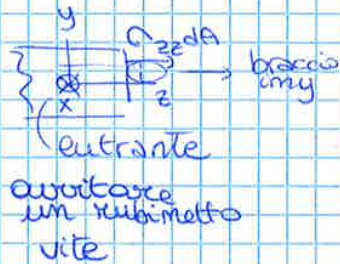 y
σzz dA
braccio
in y
x
z
entrante
avvitare
un rubinetto
vite